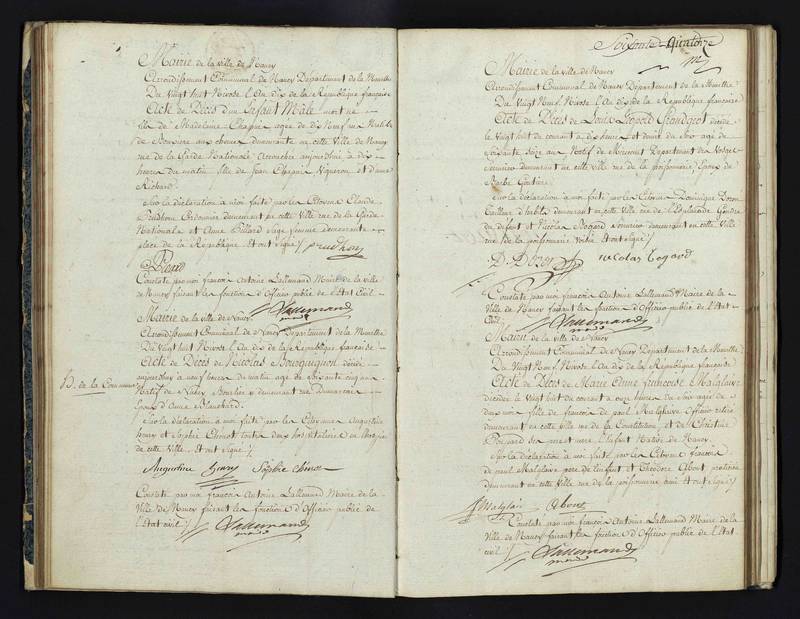 Mairie de la ville de Nancy
Arrondissement Communal de Nancy Departement de la Meurthe
Du Vingt huit Nivose l'An dix de la Republique française
Acte de Décès d'un Enfant Male mort né
fils de Madeleine Chapié agée de dix neuf ans Native
de demeurante en cette Ville de Nancy
rue de la Garde Nationale accouchée aujourdhui à dix
heures du matin, fille de Jean Vigneron, et d'anne
Richard.
Sur la déclaration à moi faite par les Citoyens Claude
Prudhom Cordonnier demeurant en cette Ville rue de la Garde
Nationale et Anne Billard Sage femme demeurante
place de la République Et ont signé /. prudhom
Constaté par moi françois Antoine Lallemand Maire de la ville
de Nancy faisant les fonctions d'Officier public de l'Etat Civil
Lallemand
maire
Mairie de la ville de Nancy
Arrondissement Communal de Nancy Departement de la Meurthe
Du Vingt huit Nivose l'An dix de la Republique française
Acte de Décès de Nicolas Bourguignon décédé
H. de la Commune
aujourdhuy à neuf heures du matin agé de Soixante cinq ans
Natif de Nancy demeurant rue
Epoux d'Anne Blanchard.
Sur la déclaration à moi faite par les Citoyennes Augustine
henry et Sophie Chinot toutes deux hospitalieres en
de cette Ville. Et ont signé /.
Augustine henry Sophie Chinot
Constaté par moi françois Antoine Lallemand Maire de la
Ville de Nancy faisant les fonctions d'Officier public de
l'Etat civil /. Lallemand
maire
Soixante-Quatorze
Mairie de la ville de Nancy
Arrondissement Communal de Nancy Departement de la Meurthe
Du Vingt Neuf Nivose l'An dix de la République française
Acte de Décès de Louis Leopold Grandjeot décédé
le Vingt huit du courant à dix heures et demie du Soir agé de
Soixante Seize ans Natif de Mirecourt Departement des Vosges
demeurant en cette ville rue de la poissonnerie Epoux de
Barbe
Sur la déclaration à moi faite par les Citoyens Dominique
Tailleur d'habits demeurant en cette Ville rue de l'Esplanade Gendre
du défunt et Nicolas Bogard demeurant en cette Ville
rue de la poissonnerie Voisin Et ont signé /.
nicolas Bogard
Constaté par moi françois Antoine Lallemand Maire de la
Ville de Nancy faisant les fonctions d'Officier public de l'Etat
civil /. Lallemand
maire
Mairie de la ville de Nancy
Arrondissement Communal de Nancy Departement de la Meurthe
Du Vingt Neuf Nivose l'An dix de la République française
Acte de Décès de Marie Anne françoise Malglaive
décédée le Vingt huit du courant à onze heures du Soir agée de
mois fille de françois de paul Malglaive Officier retiré
demeurant en cette ville rue de la Constitution, et de Christine
ses pere et mere, l'Enfant Native de Nancy.
Sur la déclaration à moi faite par les Citoyens françois
de paul Malglaive pere de l'enfant et Theodore
demeurant en cette Ville rue de la poissonnerie Et ont signé /.
Malglaive
Constaté par moi françois Antoine Lallemand Maire de la
Ville de Nancy faisant les fonctions d'Officier public de l'Etat
civil /. Lallemand
maire